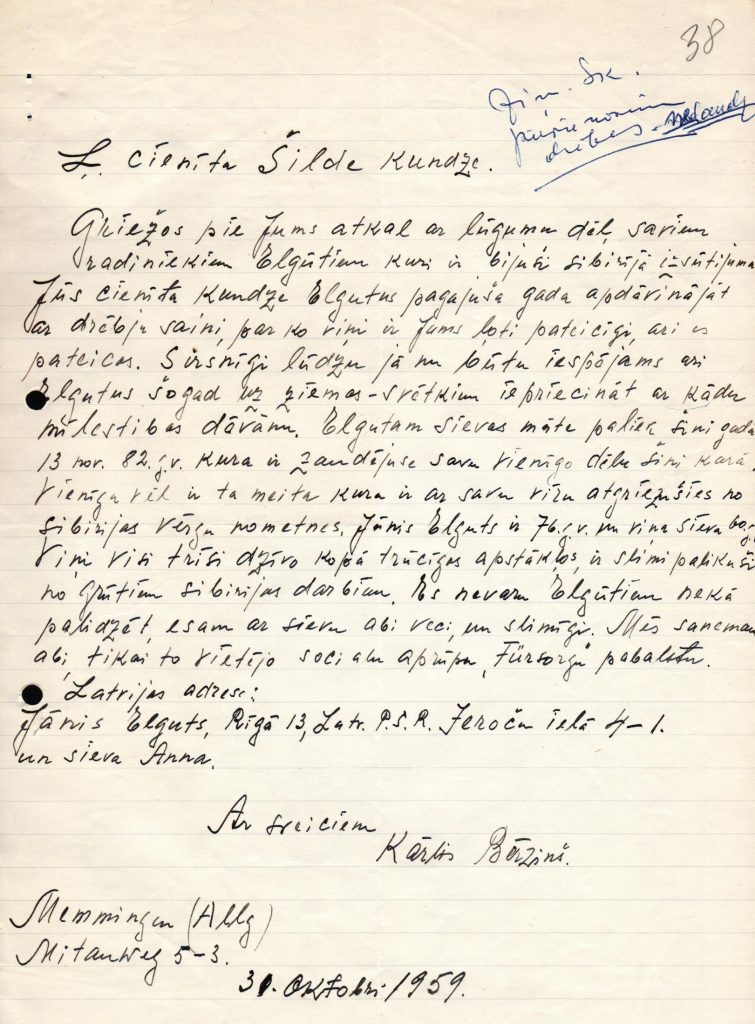 38
Ļ. cienīta Šilde kundze.
Griežos pie Jums atkal ar lūgumu dēļ saviem
radiniekiem Elgūtiem kuri ir bijuši sibirijā izsūtijumā
Jūs cienīta kundze Elgutus pagajuša gada apdāvinājāt
ar drēbju saini, par ko viņi ir Jums ļoti pateicīgi, ari es
pateicos. Sirsnīgi lūdzu jā nu būtu iespējams ari
Elgutus šogad uz ziemas-svētkiem iepriecināt ar kādu
mīlestibas dāvānu. Elgutam sievas māte paliek šini gadā
13 nov. 82. g.v. kura ir zaudējuse savu vienīgo dēlu šini karā,
vienīga vēl ir ta meita kura ir ar savu vīru atgriezušies no
sibirijas vērgu nometnes. Jānis Elguts ir 76. g.v. un viņa sieva 60. g.
Viņi visi trīsi dzīvo kopā trūcīgos apstākļos, ir slimi palikuši
no grūtiem sibirijas darbiem. Es nevaru Elgūtiem nekā
palidzēt, esam ar sievu abi veci, un slimīgi. Mēs saņemam
abi, tikai to vietējo socialu aprūpu, "Fürsorgu" pabalstu.
Latvijas adrese:
Jānis Elguts, Rīgā 13, Latv. P.S.R. Ieroču ielā 4-1.
un sieva Anna.
Ar sveiciem
Kārlis Bērziņš.
Memmingen (Allg)
Mitauweg 5-3.
31. Oktobri 1959.